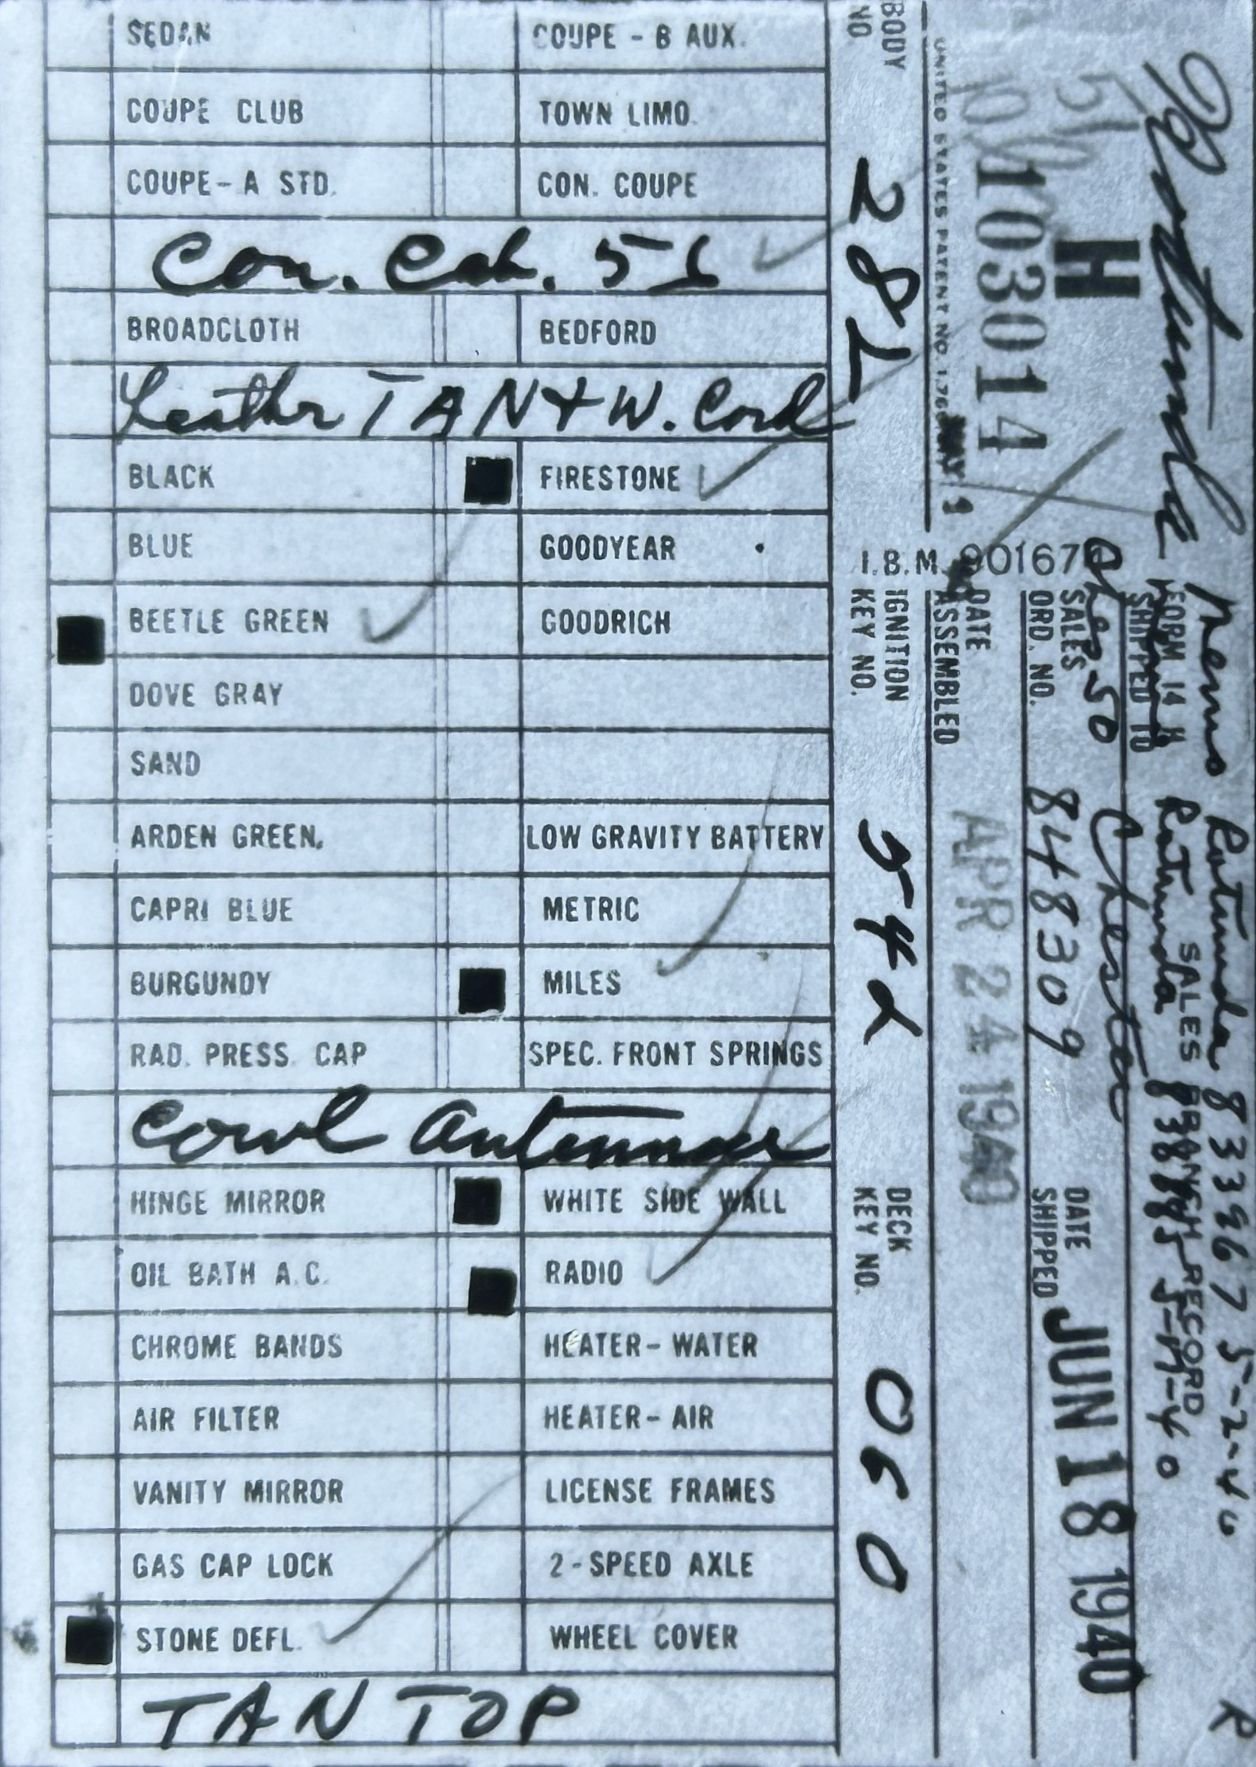 SEDAN COUPE - B AUX.
COUPE CLUB TOWN LIMO.
COUPE-A STD. CON. COUPE
Con. Cab. 56
BROADCLOTH BEDFORD
Leather TAN + W. Cord
BLACK FIRESTONE
BLUE GOODYEAR
BEETLE GREEN GOODRICH
DOVE GRAY
SAND
ARDEN GREEN. LOW GRAVITY BATTERY
CAPRI BLUE METRIC
BURGUNDY MILES
RAD. PRESS. CAP SPEC. FRONT SPRINGS
Cowl Antennae
HINGE MIRROR WHITE SIDE WALL
OIL BATH A.C. RADIO
CHROME BANDS HEATER-WATER
AIR FILTER HEATER-AIR
VANITY MIRROR LICENSE FRAMES
GAS CAP LOCK 2-SPEED AXLE
STONE DEFL. WHEEL COVER
TAN TOP
Rotunda
Memo Rotunda 83367 5-2-40
Rotunda
FORM 14 H SALES BRANCH RECORD
SHIPPED TO
Chester
H
103014
SALES ORD. NO. 848309
DATE SHIPPED JUN 18 1940
DATE ASSEMBLED APR 24 1940
UNITED STATES PATENT NO.
I.B.M. 901676
BODY NO. 28L
IGNITION KEY NO. 542
DECK KEY NO. 060
R